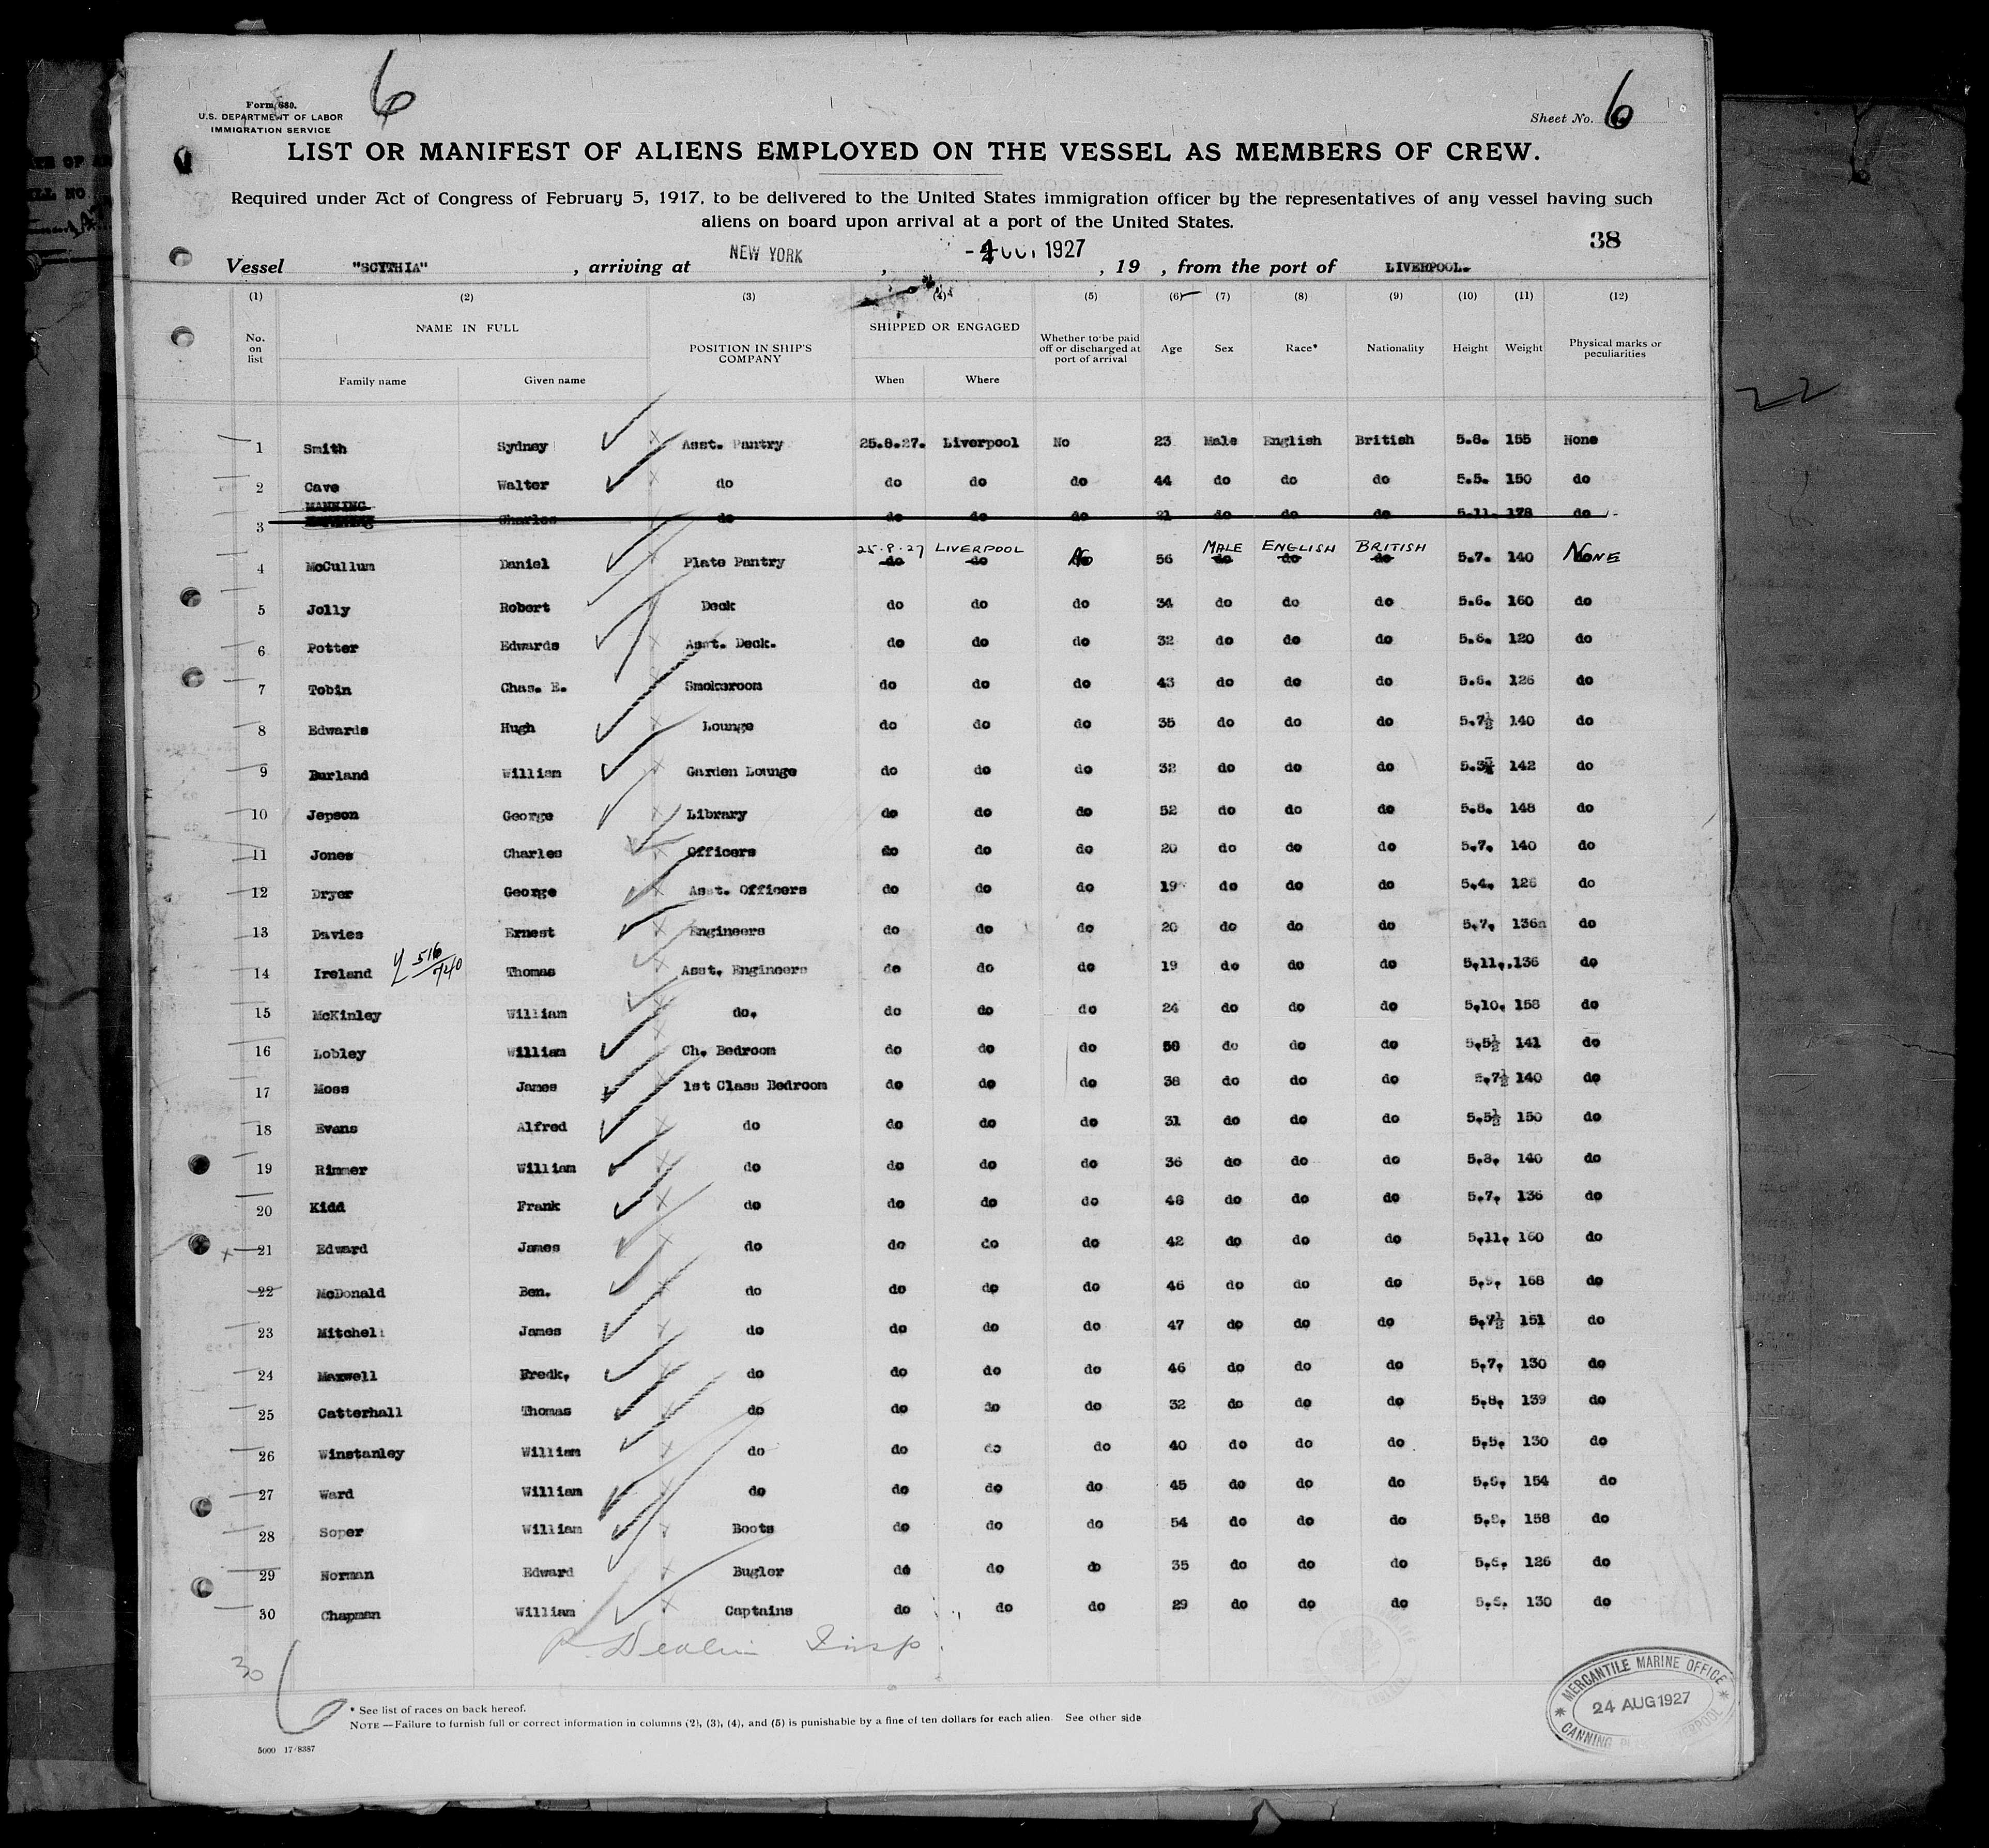 6
Form 680.
U.S. DEPARTMENT OF LABOR
IMMIGRATION SERVICE
Sheet No. 6
LIST OR MANIFEST OF ALIENS EMPLOYED ON THE VESSEL AS MEMBERS OF CREW.
Required under Act of Congress of February 5, 1917, to be delivered to the United States immigration officer by the representatives of any vessel having such
aliens on board upon arrival at a port of the United States.
38
Vessel "SCYTHIA", arriving at NEW YORK, 1927, 19 , from the port of LIVERPOOL.
(1) (2) (3) (4) (5) (6) (7) (8) (9) (10) (11) (12)
No. on list NAME IN FULL Family name Given name POSITION IN SHIP'S COMPANY SHIPPED OR ENGAGED When Where Whether to be paid off or discharged at port of arrival Age Sex Race* Nationality Height Weight Physical marks or peculiarities
1 Smith Sydney Asst. Pantry 25.8.27. Liverpool No 23 Male English British 5.8. 155 None
2 Cave Walter do do do do 44 do do do 5.5. 150 do
MANNING
3 Charles do do do do 21 do do do 5.11. 178 do
25.8.27 LIVERPOOL MALE ENGLISH BRITISH
4 McCullum Daniel Plate Pantry do do No 56 do do do 5.7. 140 NONE
5 Jolly Robert Deck do do do 34 do do do 5.6. 160 do
6 Potter Edwards Asst. Deck. do do do 32 do do do 5.6. 120 do
7 Tobin Chas. E. Smokeroom do do do 43 do do do 5.6. 126 do
8 Edwards Hugh Lounge do do do 35 do do do 5.7½ 140 do
9 Burland William Garden Lounge do do do 32 do do do 142 do
10 Jepson George Library do do do 52 do do do 5.8. 148 do
11 Jones Charles Officers do do do 20 do do do 5.7. 140 do
12 Dryer George Asst. Officers do do do 19 do do do 5.4. 126 do
13 Davies Ernest Engineers do do do 20 do do do 5.7. 136 do
14 Ireland Thomas Asst. Engineers do do do 19 do do do 5.11. 136 do
15 McKinley William do. do do do 24 do do do 5.10. 158 do
16 Lobley William Ch. Bedroom do do do do do do 5.5½ 141 do
17 Moss James 1st Class Bedroom do do do 38 do do do 5.7½ 140 do
18 Evans Alfred do do do do 31 do do do 5.5½ 150 do
19 Rimmer William do do do do 36 do do do 5.8. 140 do
20 Kidd Frank do do do do 48 do do do 5.7. 136 do
x 21 Edward James do do do do 42 do do do 5.11. 160 do
22 McDonald Ben. do do do do 46 do do do 5.9. 168 do
23 Mitchell James do do do do 47 do do do 5.7½ 151 do
24 Maxwell Fredk. do do do do 46 do do do 5.7. 130 do
25 Catterhall Thomas do do do do 32 do do do 5.8. 139 do
26 Winstanley William do do do do 40 do do do 5.5. 130 do
27 Ward William do do do do 45 do do do 154 do
28 Soper William Boots do do do 54 do do do 158 do
29 Norman Edward Bugler do do do 35 do do do 5.6. 126 do
30 Chapman William Captains do do do 29 do do do 5.6. 130 do
Insp.
30
6
* See list of races on back hereof.
NOTE —Failure to furnish full or correct information in columns (2), (3), (4), and (5) is punishable by a fine of ten dollars for each alien. See other side
5000 17/8387
MERCANTILE MARINE OFFICE
24 AUG 1927
CANNING LIVERPOOL
22